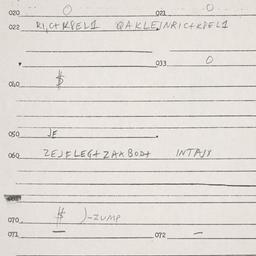 020 O 021 O
022 RI,C+KPEL1 QAKLEJNRIC+KPEL1
033 O
040 $
050 JE
060 ZEJELEG+ZAKBOD+ INTAJY
070 $ )-ZUMP
071 — 072 –